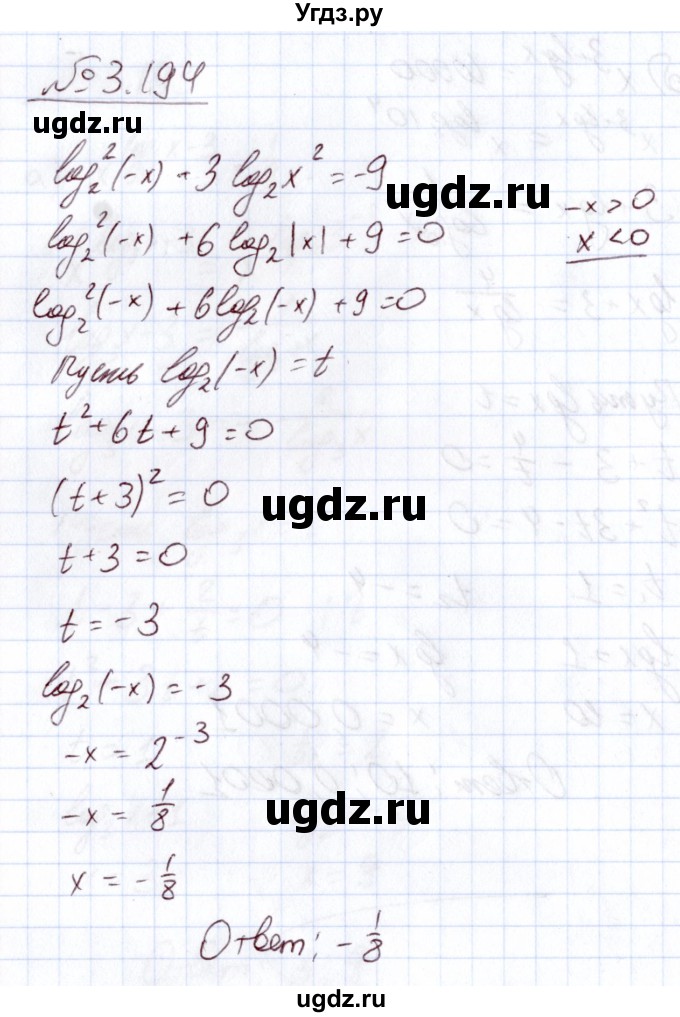 Угдз.ру
№3.194
ugdz.ru
log₂²(-x) + 3 log₂x² = -9
ugdz.ru
-x > 0
log₂²(-x) + 6 log₂|x| + 9 = 0
x < 0
log₂²(-x) + 6log₂(-x) + 9 = 0
Пусть log₂(-x) = t
t² + 6t + 9 = 0
(t+3)² = 0
ugdz.ru
t + 3 = 0
t = -3
log₂(-x) = -3
-x = 2⁻³
-x = 1/8
ugdz.ru
x = -1/8
Ответ: -1/8
ugdz.ru